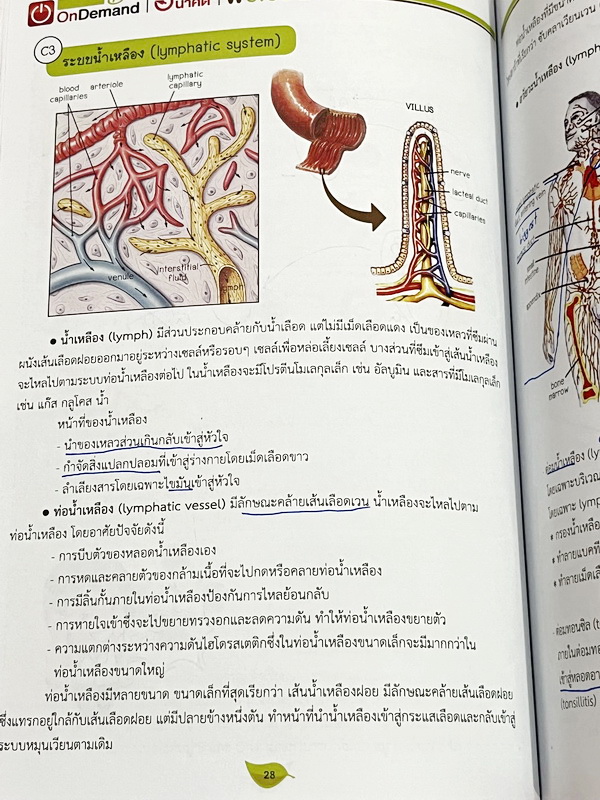 OnDemand
C3 ระบบน้ำเหลือง (lymphatic system)
blood capillaries
arteriole
lymphatic capillary
venule
interstitial fluid
lymph
VILLUS
nerve
lacteal duct
capillaries
• น้ำเหลือง (lymph) มีส่วนประกอบคล้ายกับน้ำเลือด แต่ไม่มีเม็ดเลือดแดง เป็นของเหลวที่ซึมผ่าน
ผนังเส้นเลือดฝอยออกมาอยู่ระหว่างเซลล์หรือรอบๆ เซลล์เพื่อหล่อเลี้ยงเซลล์ บางส่วนที่ซึมเข้าสู่เส้นน้ำเหลือง
จะไหลไปตามระบบท่อน้ำเหลืองต่อไป ในน้ำเหลืองจะมีโปรตีนโมเลกุลเล็ก เช่น อัลบูมิน และสารที่มีโมเลกุลเล็ก
เช่น แก๊ส กลูโคส น้ำ
หน้าที่ของน้ำเหลือง
- นำของเหลวส่วนเกินกลับเข้าสู่หัวใจ
- กำจัดสิ่งแปลกปลอมที่เข้าสู่ร่างกายโดยเม็ดเลือดขาว
- ลำเลียงสารโดยเฉพาะไขมันเข้าสู่หัวใจ
• ท่อน้ำเหลือง (lymphatic vessel) มีลักษณะคล้ายเส้นเลือดเวน น้ำเหลืองจะไหลไปตาม
ท่อน้ำเหลือง โดยอาศัยปัจจัยดังนี้
- การบีบตัวของหลอดน้ำเหลืองเอง
- การหดและคลายตัวของกล้ามเนื้อที่จะไปกดหรือคลายท่อน้ำเหลือง
- การมีลิ้นกั้นภายในท่อน้ำเหลืองป้องกันการไหลย้อนกลับ
- การหายใจเข้าซึ่งจะไปขยายทรวงอกและลดความดัน ทำให้ท่อน้ำเหลืองขยายตัว
- ความแตกต่างระหว่างความดันไฮโดรสเตติกซึ่งในท่อน้ำเหลืองขนาดเล็กจะมีมากกว่าใน
ท่อน้ำเหลืองขนาดใหญ่
ท่อน้ำเหลืองมีหลายขนาด ขนาดเล็กที่สุดเรียกว่า เส้นน้ำเหลืองฝอย มีลักษณะคล้ายเส้นเลือดฝอย
ซึ่งแทรกอยู่ใกล้กับเส้นเลือดฝอย แต่มีปลายข้างหนึ่งตัน ทำหน้าที่นำน้ำเหลืองเข้าสู่กระแสเลือดและกลับเข้าสู่
ระบบหมุนเวียนตามเดิม
28
bone marrow
(tonsillitis)